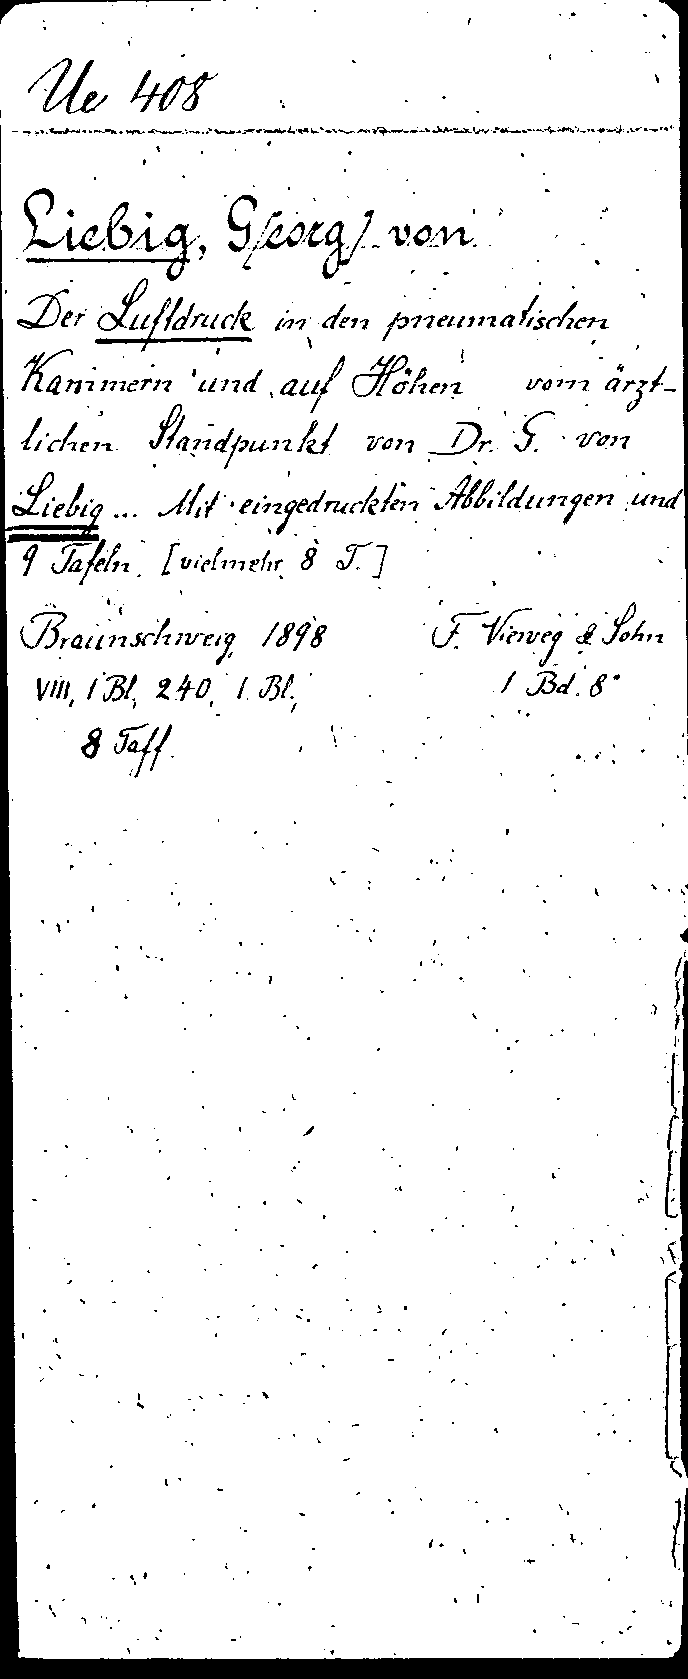 Ue 408
Liebig, G[eorg] von
Der Luftdruck in den pneumatischen
Kammern und auf Höhen vom ärzt-
lichen Standpunkt von Dr. G. von
Liebig ... Mit eingedruckten Abbildungen und
9 Tafeln. [vielmehr 8 T.]
Braunschweig 1898 F. Vieweg & Sohn
VIII, 1 Bl., 240, 1 Bl., 1 Bd. 8°
8 Taff.